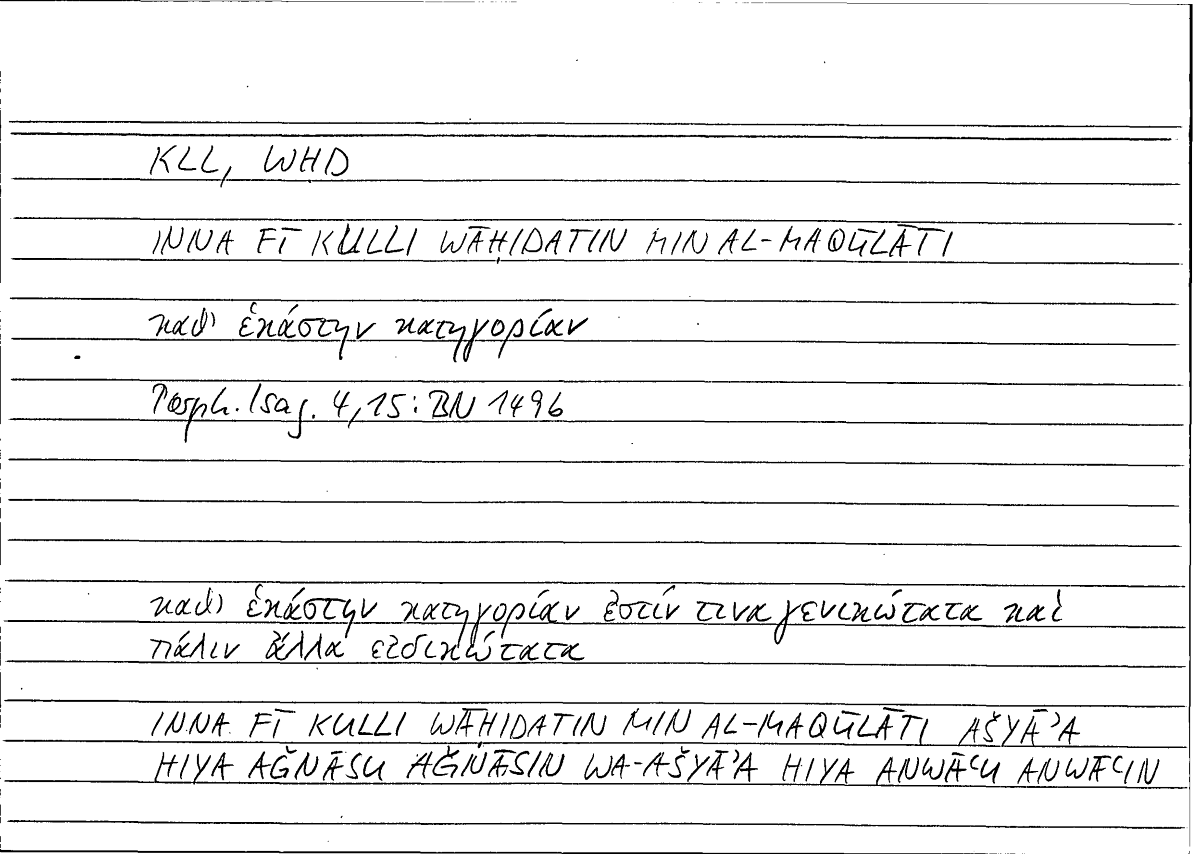 KLL, WḤD
INNA FĪ KULLI WĀḤIDATIN MIN AL-MAQŪLĀTI
καθ’ ἑκάστην κατηγορίαν
Porph. Isag. 4,15: BN 1496
καθ’ ἑκάστην κατηγορίαν ἐστίν τινα γενικώτατα καὶ
πάλιν ἄλλα εἰδικώτατα
INNA FĪ KULLI WĀḤIDATIN MIN AL-MAQŪLĀTI AŠYĀʾA
HIYA AǦNĀSU AǦNĀSIN WA-AŠYĀʾA HIYA ANWĀʿU ANWĀʿIN